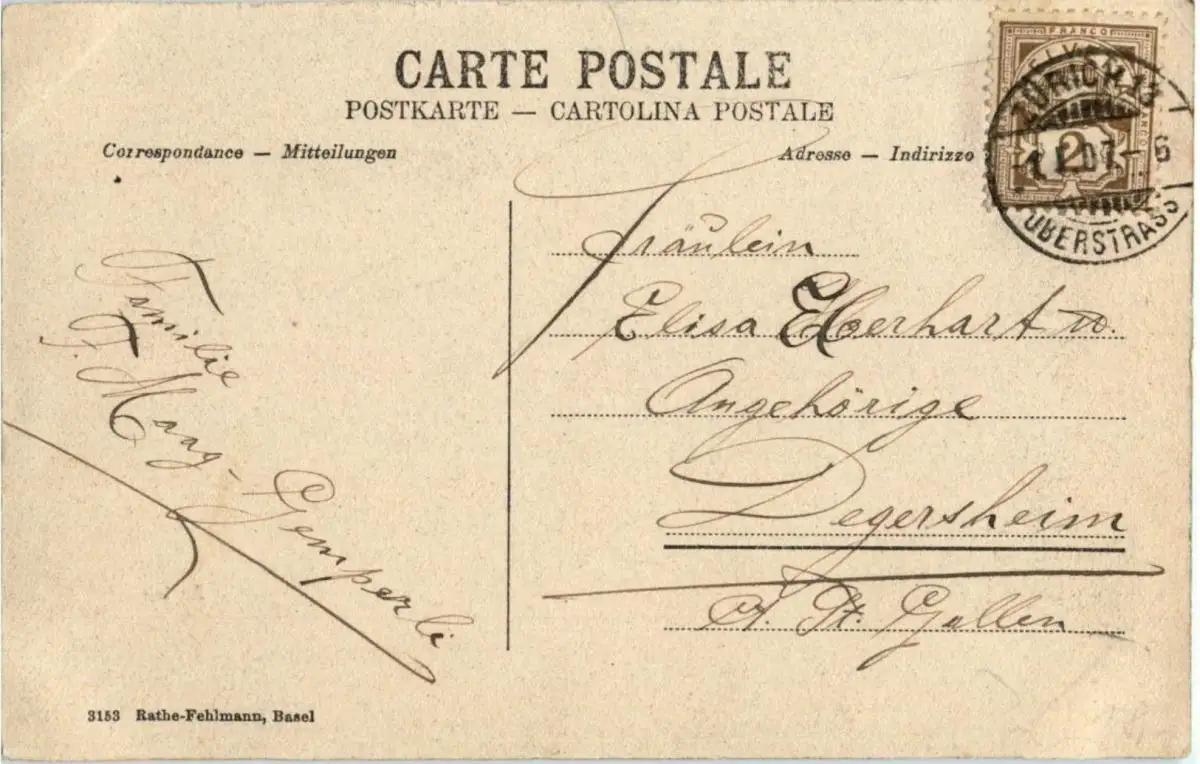 CARTE POSTALE
POSTKARTE — CARTOLINA POSTALE
Correspondance — Mitteilungen
Adresse — Indirizzo
FRANCO
HELVETIA
2
ZÜRICH 13
1.I.07.- 6
OBERSTRASS
Familie
F. Maag-
Gemperli
Fräulein
Elisa Eberhart u.
Angehörige
Degersheim
Ct. St. Gallen
3153 Rathe-Fehlmann, Basel